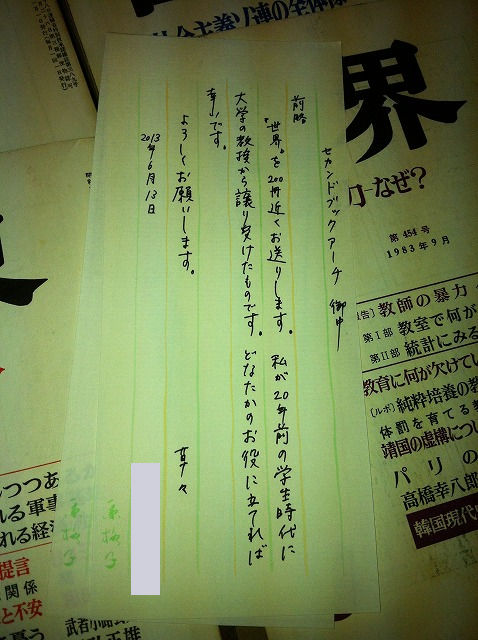 セカンドブックアーチ 御中
前略
『世界』を200冊近くお送りします。 私が20年前の学生時代に
大学の教授から譲り受けたものです。 どなたかのお役に立てれば
幸いです。
よろしくお願いします。
2013年6月13日
草々
界
なぜ?
第454号
1983年9月
教師の暴力
第Ⅰ部 教室で何が
第Ⅱ部 統計にみる
教育に何が欠けてい
[ルポ]純粋培養の教
体罰を育てる
靖国の虚構につい
パリの
高橋幸八郎
韓国現代
社会主義ソ連の全体像
つつあ
れる軍事
れる経済
提言
関係
と不安